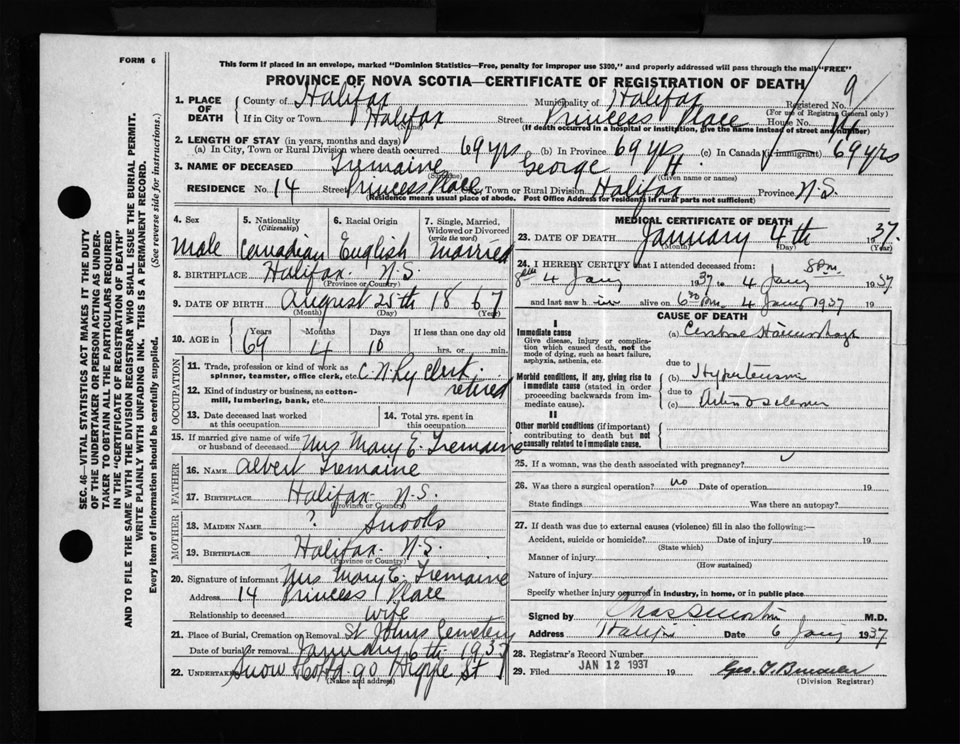 FORM 6
This form if placed in an envelope, marked "Dominion Statistics—Free, penalty for improper use $300," and properly addressed will pass through the mail "FREE"
PROVINCE OF NOVA SCOTIA—CERTIFICATE OF REGISTRATION OF DEATH
SEC. 46—VITAL STATISTICS ACT MAKES IT THE DUTY
OF THE UNDERTAKER OR PERSON ACTING AS UNDER-
TAKER TO OBTAIN ALL THE PARTICULARS REQUIRED
IN THE "CERTIFICATE OF REGISTRATION OF DEATH"
AND TO FILE THE SAME WITH THE DIVISION REGISTRAR WHO SHALL ISSUE THE BURIAL PERMIT.
WRITE PLAINLY WITH UNFADING INK. THIS IS A PERMANENT RECORD.
Every item of Information should be carefully supplied. (See reverse side for instructions.)
1. PLACE OF DEATH
County of Halifax Municipality of Halifax Registered No. 9
(For use of Registrar General only)
If in City or Town Halifax Street Princess Place House No. 14
(Name) (If death occurred in a hospital or institution, give the name instead of street and number)
2. LENGTH OF STAY (in years, months and days)
(a) In City, Town or Rural Division where death occurred 69 yrs (b) In Province 69 yrs (c) In Canada (if immigrant) 69 yrs
3. NAME OF DECEASED Tremaine George H.
(Surname) (Given name or names)
RESIDENCE No. 14 Street Princess Place City, Town or Rural Division Halifax Province N.S.
(Residence means usual place of abode. Post Office Address for residents in rural parts not sufficient)
4. Sex 5. Nationality (Citizenship) 6. Racial Origin 7. Single, Married, Widowed or Divorced (write the word)
Male Canadian English Married
8. BIRTHPLACE Halifax N.S.
(Province or Country)
9. DATE OF BIRTH August 25th 1867
(Month) (Day) (Year)
10. AGE in Years Months Days If less than one day old
69 4 10 hrs. or min.
OCCUPATION
11. Trade, profession or kind of work as
spinner, teamster, office clerk, etc. C.N.Ry Clerk.
12. Kind of industry or business, as cotton-
mill, lumbering, bank, etc. retired
13. Date deceased last worked
at this occupation
14. Total yrs. spent in
this occupation
15. If married give name of wife
or husband of deceased Mrs Mary E. Tremaine
FATHER
16. NAME Albert Tremaine
17. BIRTHPLACE Halifax N.S.
(Province or Country)
MOTHER
18. MAIDEN NAME ? Snooks
19. BIRTHPLACE Halifax N.S.
(Province or Country)
20. Signature of informant Mrs Mary E. Tremaine
Address 14 Princess Place
Relationship to deceased wife
21. Place of Burial, Cremation or Removal St Johns Cemetery
Date of burial or removal January 6th 1937
22. Undertaker Snow Co Ltd 90 Argyle St
(Name and address)
MEDICAL CERTIFICATE OF DEATH
23. DATE OF DEATH January 4th 1937.
(Month) (Day) (Year)
24. I HEREBY CERTIFY that I attended deceased from: 8 pm
4 Jany 1937 to 4 Jany 1937
and last saw h im alive on 6 30 pm 4 Jany 1937
CAUSE OF DEATH
I
Immediate cause
Give disease, injury or complica-
tion which caused death, not the
mode of dying, such as heart failure,
asphyxia, asthenia, etc.
(a) Cerebral Haemorrhage
due to
Morbid conditions, if any, giving rise to
immediate cause (stated in order
proceeding backwards from im-
mediate cause).
(b) Hypertension
due to
(c) Arterio Sclerosis
II
Other morbid conditions (if important)
contributing to death but not
causally related to immediate cause.
25. If a woman, was the death associated with pregnancy?
26. Was there a surgical operation? no Date of operation 19
State findings Was there an autopsy?
27. If death was due to external causes (violence) fill in also the following:—
Accident, suicide or homicide? Date of injury 19
(State which)
Manner of injury
(How sustained)
Nature of injury
Specify whether injury occurred in industry, in home, or in public place
Signed by M.D.
Address Halifax Date 6 Jany 1937
28. Registrar's Record Number
29. Filed JAN 12 1937 19
(Division Registrar)